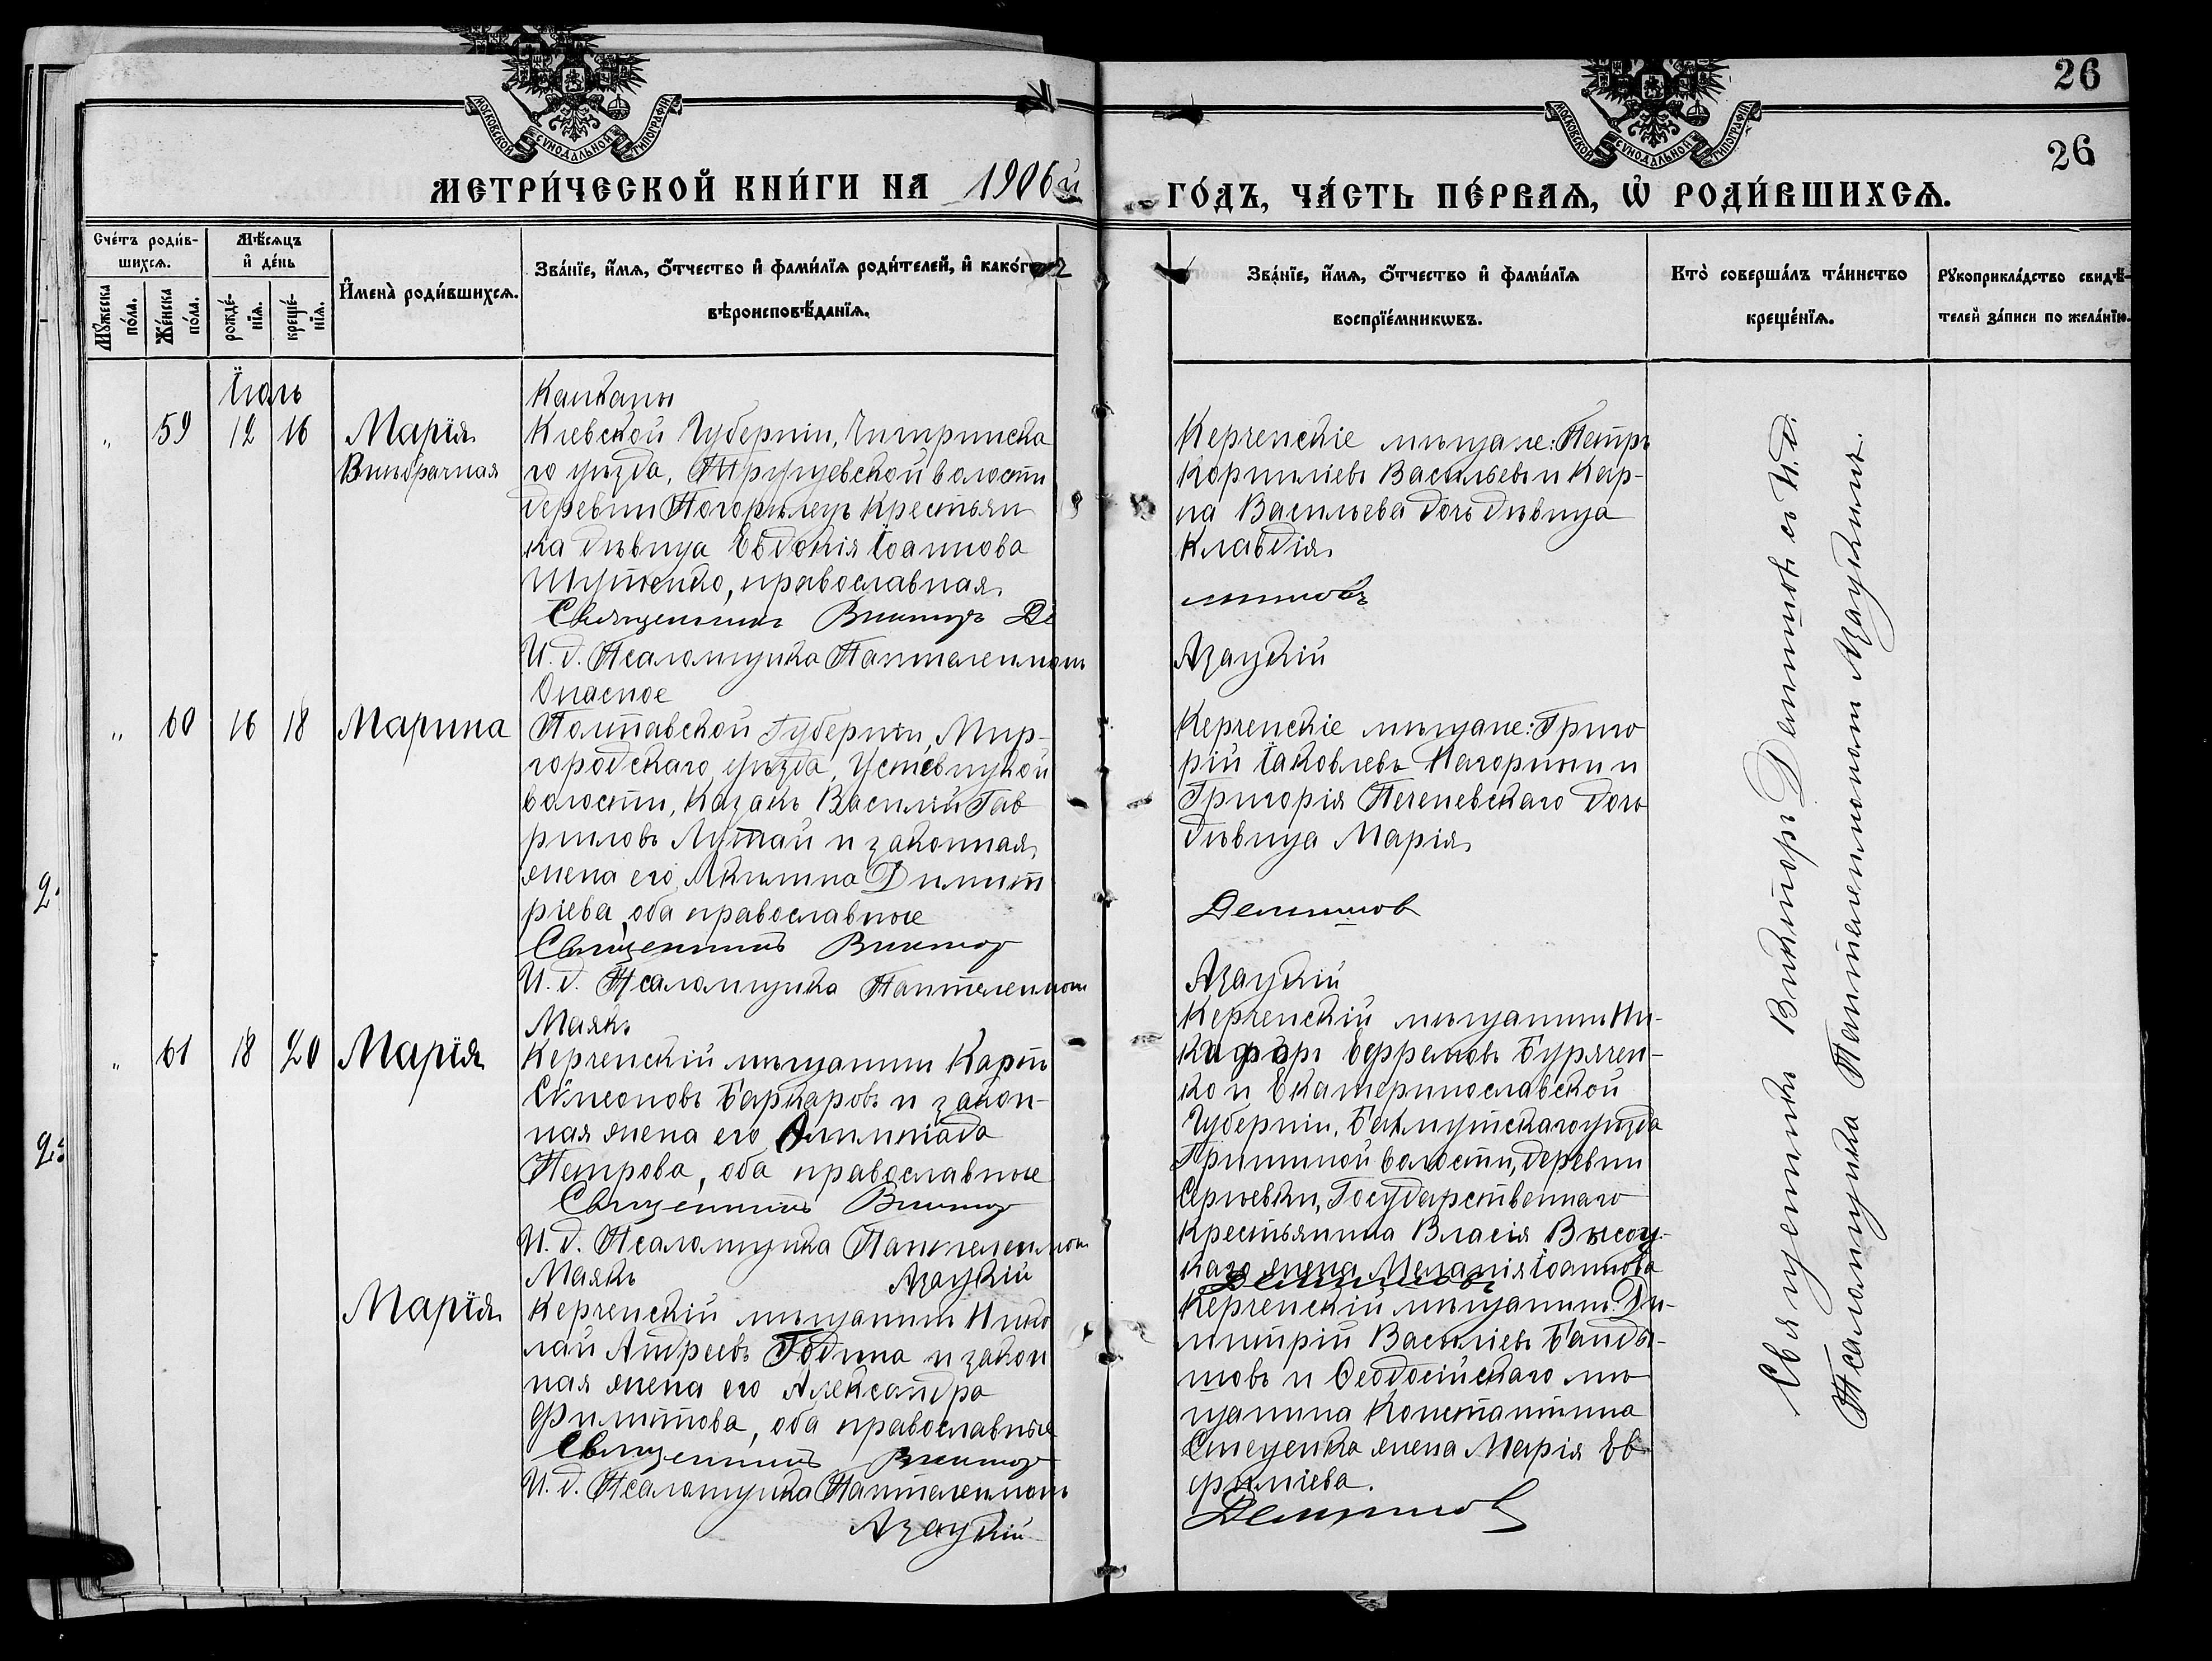 26
26
МОСКОВСКОЙ СѴНОДАЛЬНОЙ ТИПОГРАФІИ
МОСКОВСКОЙ СѴНОДАЛЬНОЙ ТИПОГРАФІИ
МЕТРИ́ЧЕСКОЙ КНИ́ГИ НА 1906й
ГО́ДЪ, ЧА́СТЬ ПЕ́РВАѦ, Ѡ҆ РОДИ́ВШИХСѦ.
Сче́тъ роди́в-
шихсѧ.
Мꙋ́жеска по́ла.
Же́нска по́ла.
Мѣ́сѧцъ
и҆ де́нь
рожде́-
нїѧ.
креще́-
нїѧ.
И҆мена̀ роди́вшихсѧ.
Зва́нїе, и҆́мѧ, ѻ҆́тчество и҆ фами́лїѧ роди́телей, и҆ како́гѡ
вѣроисповѣ́данїѧ.
Зва́нїе, и҆́мѧ, ѻ҆́тчество и҆ фами́лїѧ
воспрїе́мникѡвъ.
Кто̀ соверша́лъ та́инство
креще́нїѧ.
Рꙋкоприкла́дство свидѣ́-
телей за́писи по жела́нїю.
Іюль
59 12 16 Марія
Внѣбрачная
Капканы
Кіевской Губерніи, Чигринска
го уѣзда, волости
деревни Погорѣлецъ Крестьян
ка дѣвица Евдокія Іоаннова
православная
Священникъ Викторъ Де
И. д. Псаломщика Пантелеимонъ
Керченскіе мѣщане: Петръ
Корниліевъ Васильевъ и Кар-
па Васильева дочь дѣвица
Клавдія
мяновъ
Азацкій
60 16 18 Марина
Опасное
Полтавской Губерніи, Мир-
городскаго уѣзда, Устевицкой
волости, Казакъ Василій Гав
риловъ Лутай и законная
жена его Акилина Димит
ріева оба православные
Священникъ Виктор
И. д. Псаломщика Пантелеимон
Керченскіе мѣщане: Григо
рій Іаковлевъ Нагорный и
Григорія Печеневскаго дочь
дѣвица Марія
Демянов
Азацкій
61 18 20 Марія
Маякъ
Керченскій мѣщанин Карпъ
Сѵмеоновъ Баркаровъ и закон-
ная жена его Олимпіада
Петрова, оба православные
Священникъ Виктор
И. д. Псаломщика Пантелеимон
Азацкій
Керченскій мѣщанинъ Ни-
кифоръ Ефремовъ Бурячен-
ко и Екатеринославской
Губерніи, Бахмутскаго уѣзда
Гришиной волости, деревни
Сергѣевки, Государственнаго
крестьянина Власія Высоц-
каго жена Меланія Іоаннова
Демяновъ
Марія
Маякъ
Керченскій мѣщанинъ Нико
лай Андреевъ Година и закон
ная жена его Александра
Филиппова, оба православные
Священникъ Виктор
И. д. Псаломщика Пантелеимонъ
Азацкій
Керченскій мѣщанинъ Ди-
митрій Василіевъ Банды-
шовъ и Ѳеодосійскаго мѣ
щанина Константина
Стеценка жена Марія Ев
филіева.
Демянов
Священникъ Викторъ Демяновъ съ И. д.
Псаломщика Пантелеимономъ Азацкимъ.